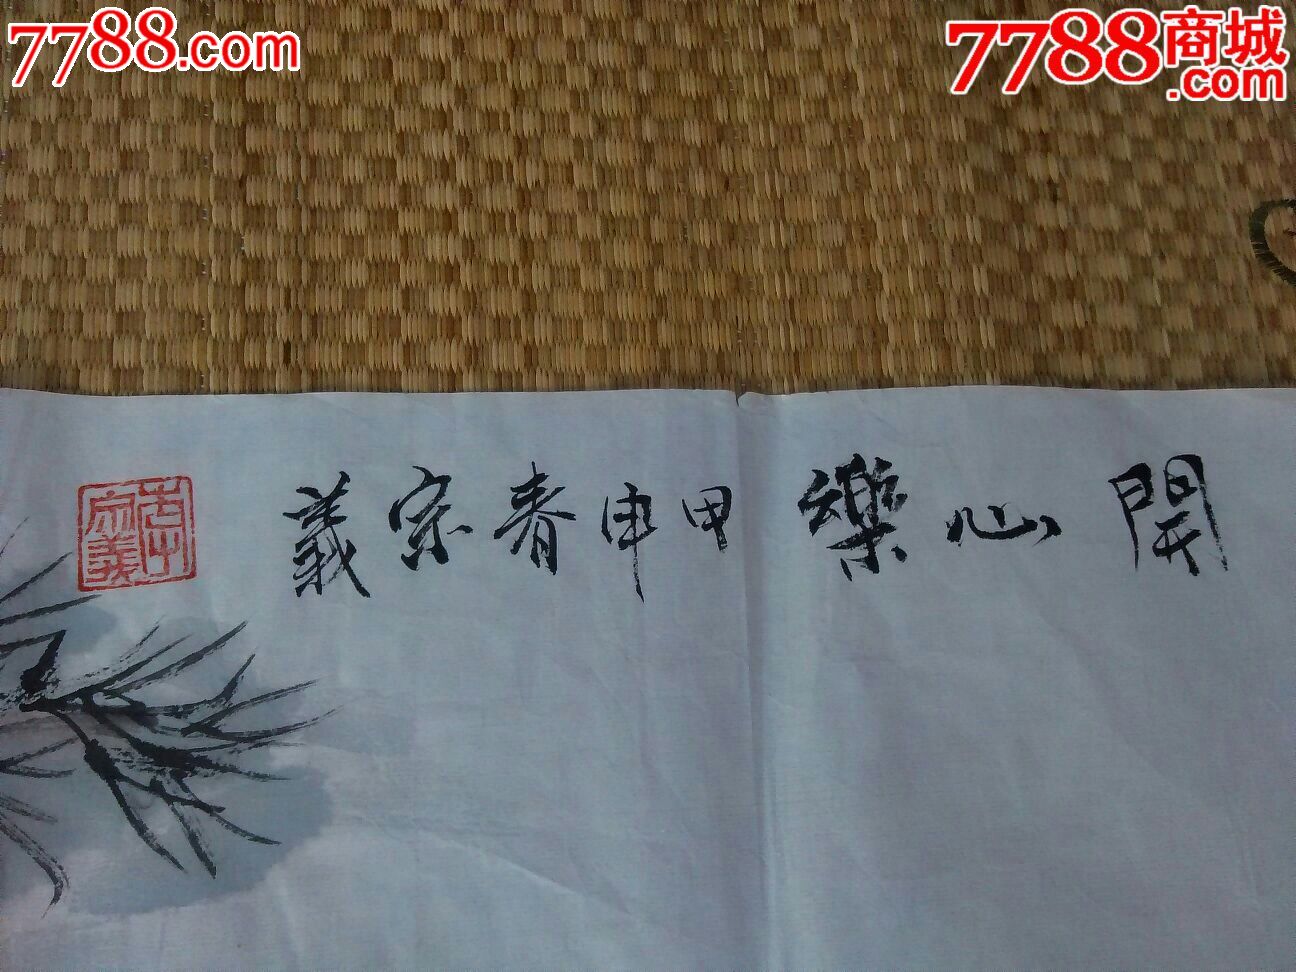 7788.com
7788商城
.com
開心樂甲申春宗義